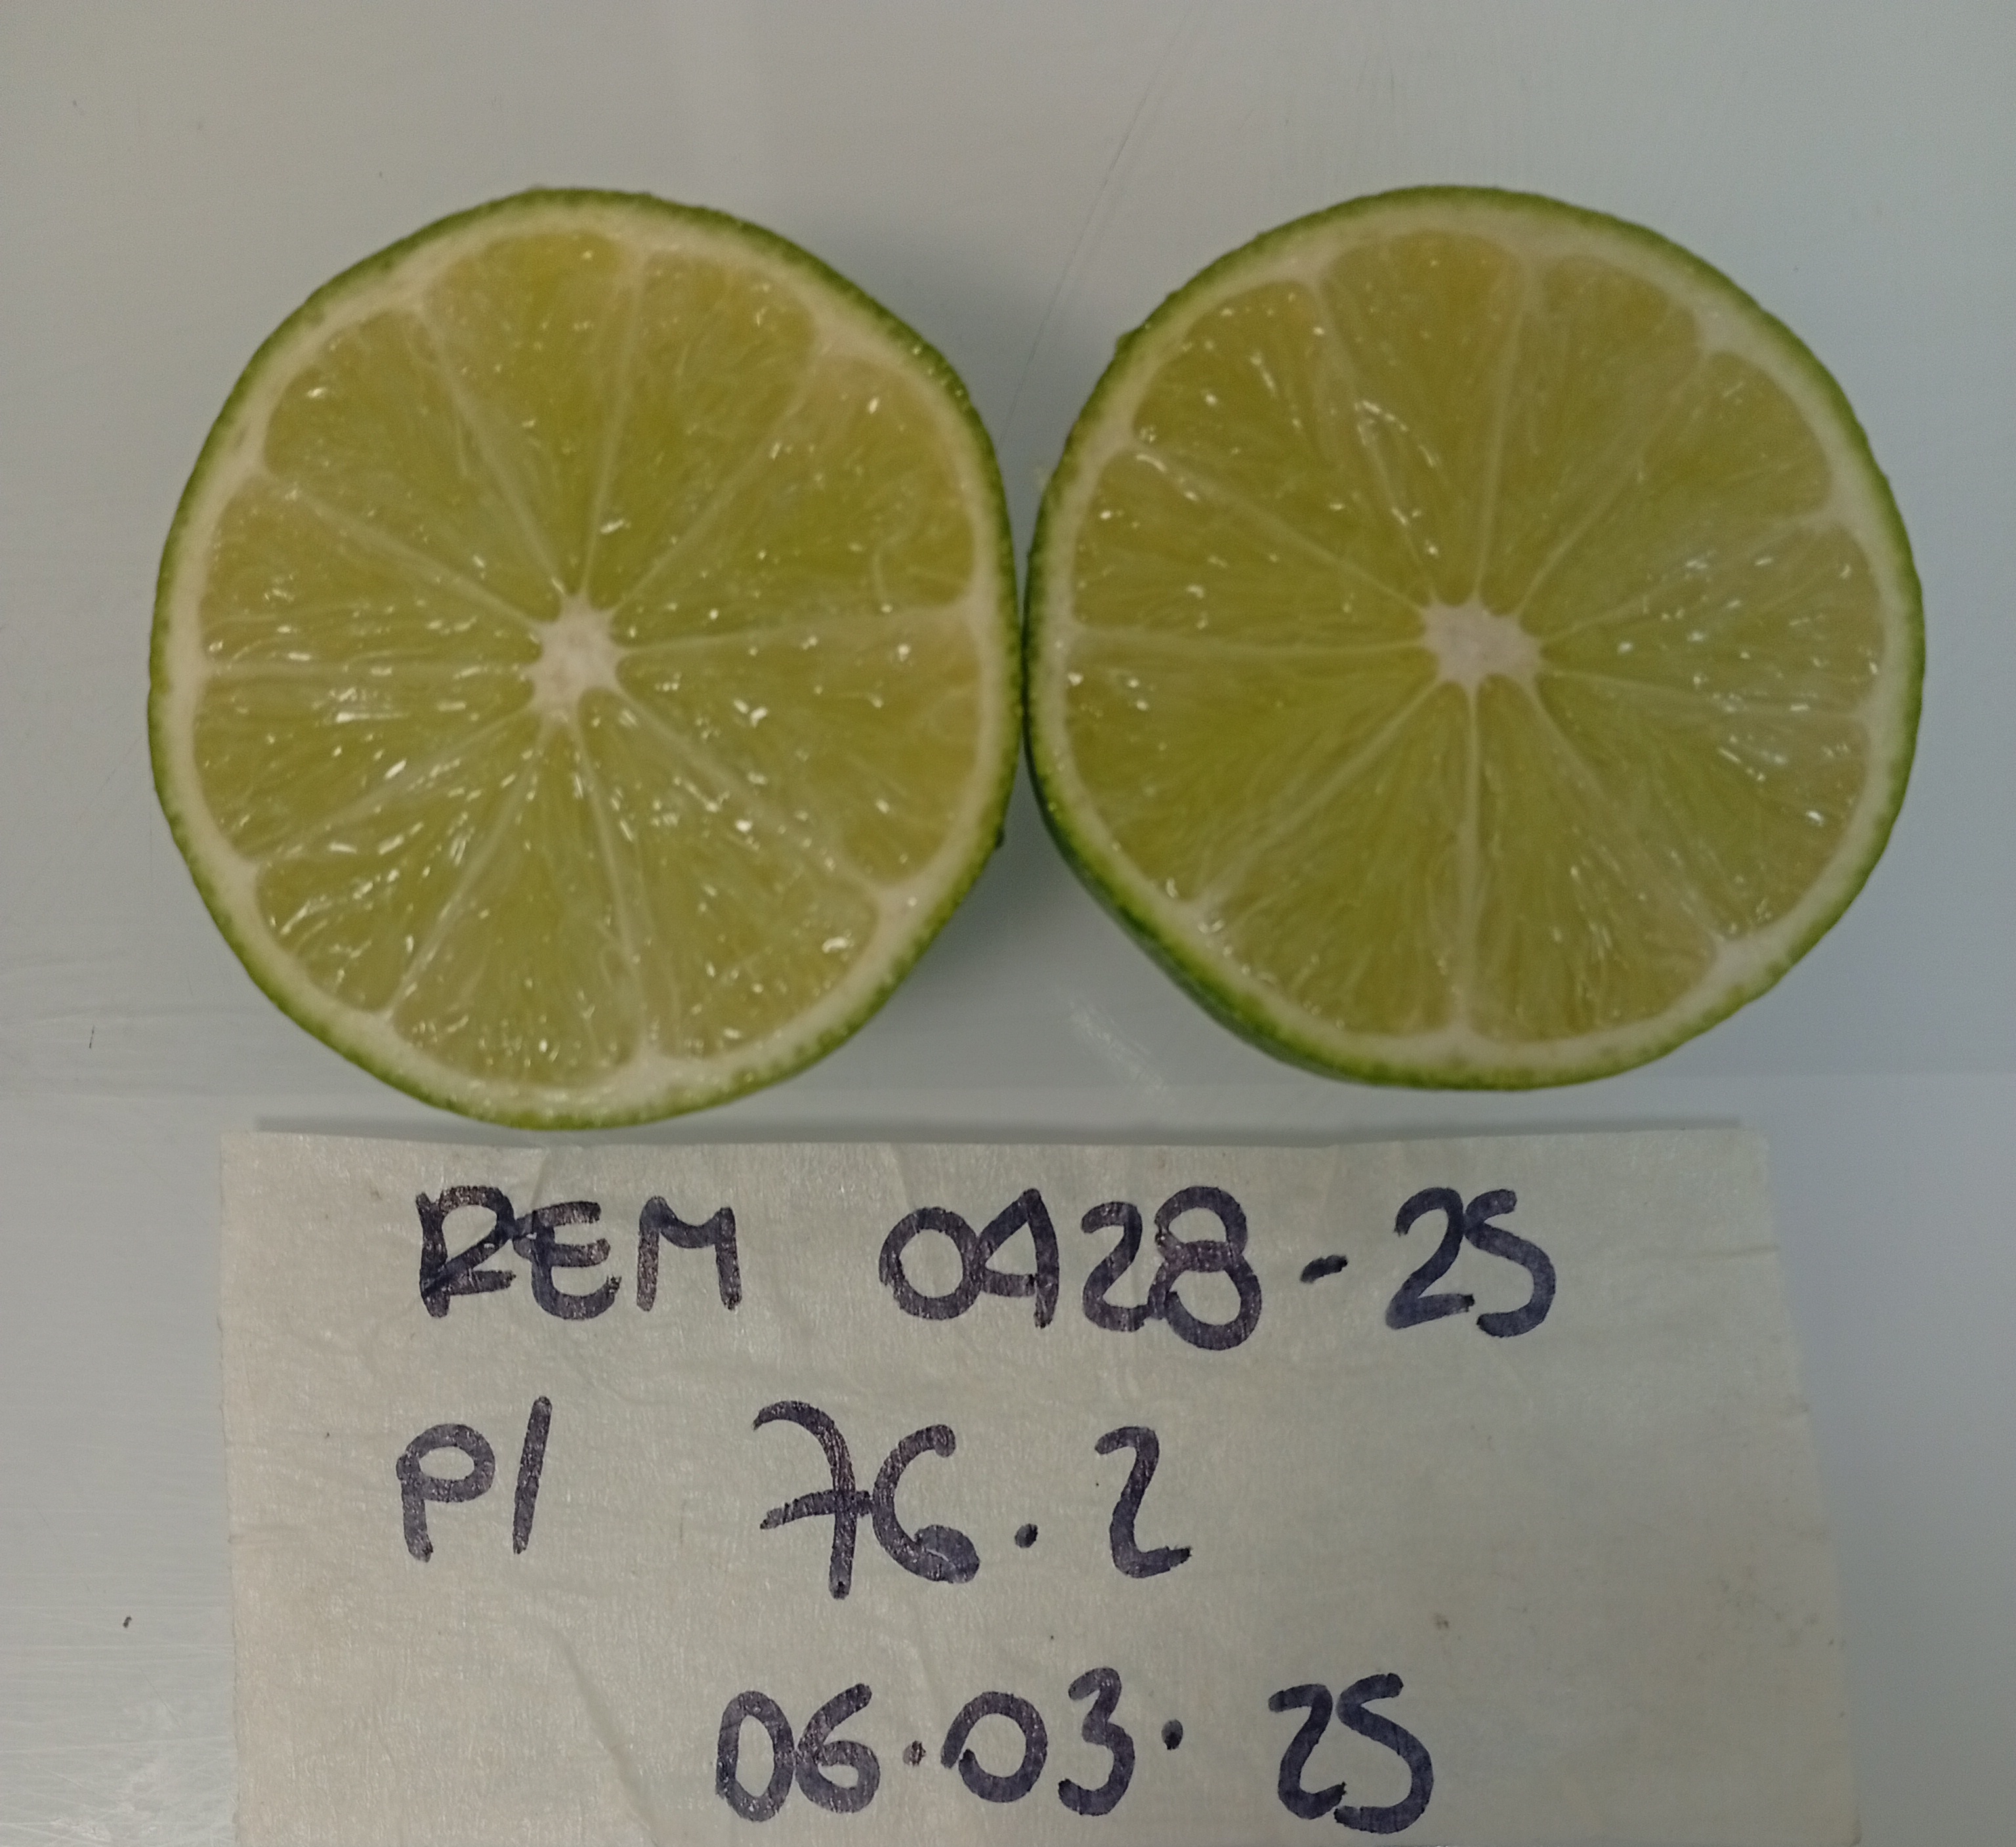 REM 0428-25
P/ 76.2
06.03.25